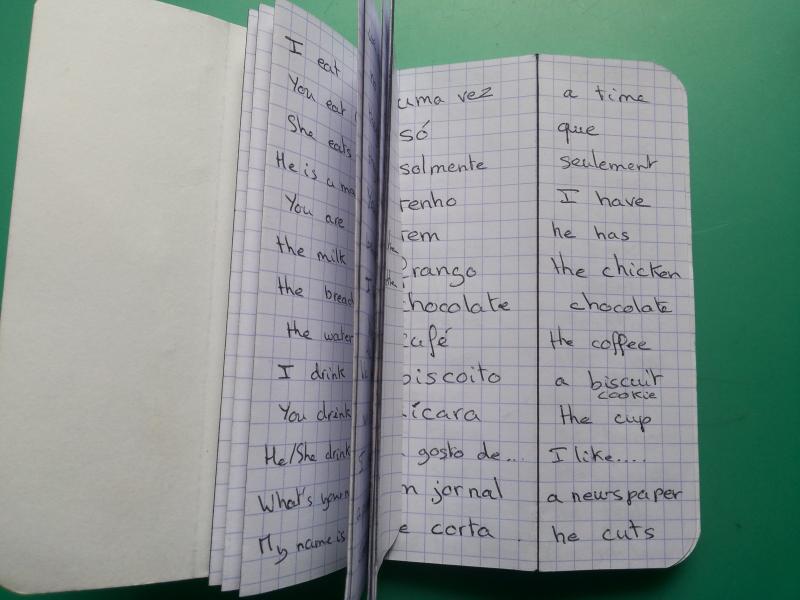 I eat
You eat
She eats
He is a
You are
the milk
the bread
the water
I drink
You drink
He/She drink
What's your
My name is
uma vez a time
só que
solmente seulement
tenho I have
tem he has
frango the chicken
chocolate chocolate
café the coffee
biscoito a biscuit
cookie
ícara the cup
gosto de... I like....
jornal a newspaper
e corta he cuts